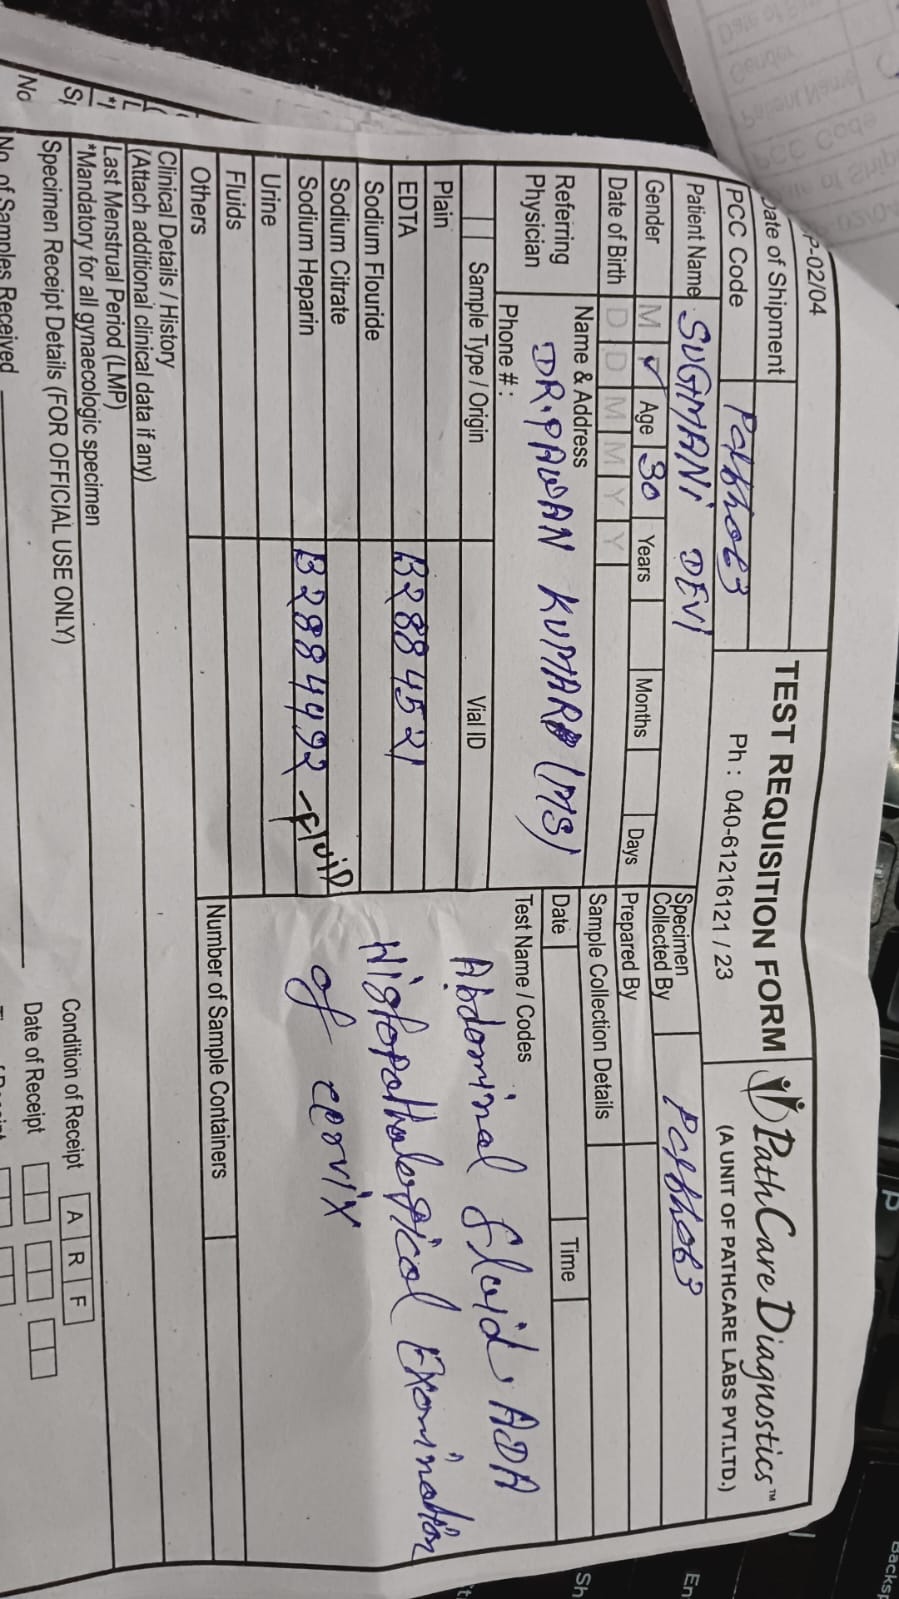 P-02/04
TEST REQUISITION FORM
Ph : 040-61216121 / 23
PathCare Diagnostics™
(A UNIT OF PATHCARE LABS PVT.LTD.)
Date of Shipment
PCC Code
Patient Name SUGMANI DEVI
Gender M ✓ Age 30 Years Months Days
Date of Birth D D M M Y Y
Specimen
Collected By
Prepared By
Sample Collection Details
Date Time
Referring
Physician
Name & Address
DR. PAWAN KUMAR (MS)
Phone # :
Test Name / Codes
Abdominal fluid, ADA
Histopathological Examination
of
Sample Type / Origin Vial ID
Plain
EDTA B2884521
Sodium Flouride
Sodium Citrate
Sodium Heparin B2884492 - fluiD
Urine
Fluids
Others
Number of Sample Containers
Clinical Details / History
(Attach additional clinical data if any)
Last Menstrual Period (LMP)
*Mandatory for all gynaecologic specimen
Specimen Receipt Details (FOR OFFICIAL USE ONLY)
Condition of Receipt A R F
No. of Samples Received
Date of Receipt